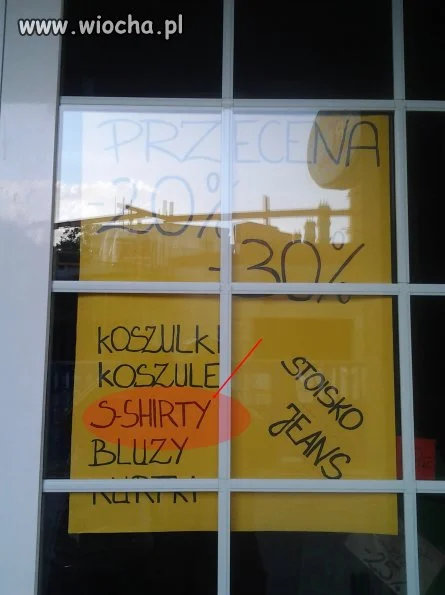 www.wiocha.pl
PRZECENA
-20%
-30%
KOSZULKI
KOSZULE
S-SHIRTY
BLUZY
KURTKI
STOISKO
JEANS
-25%